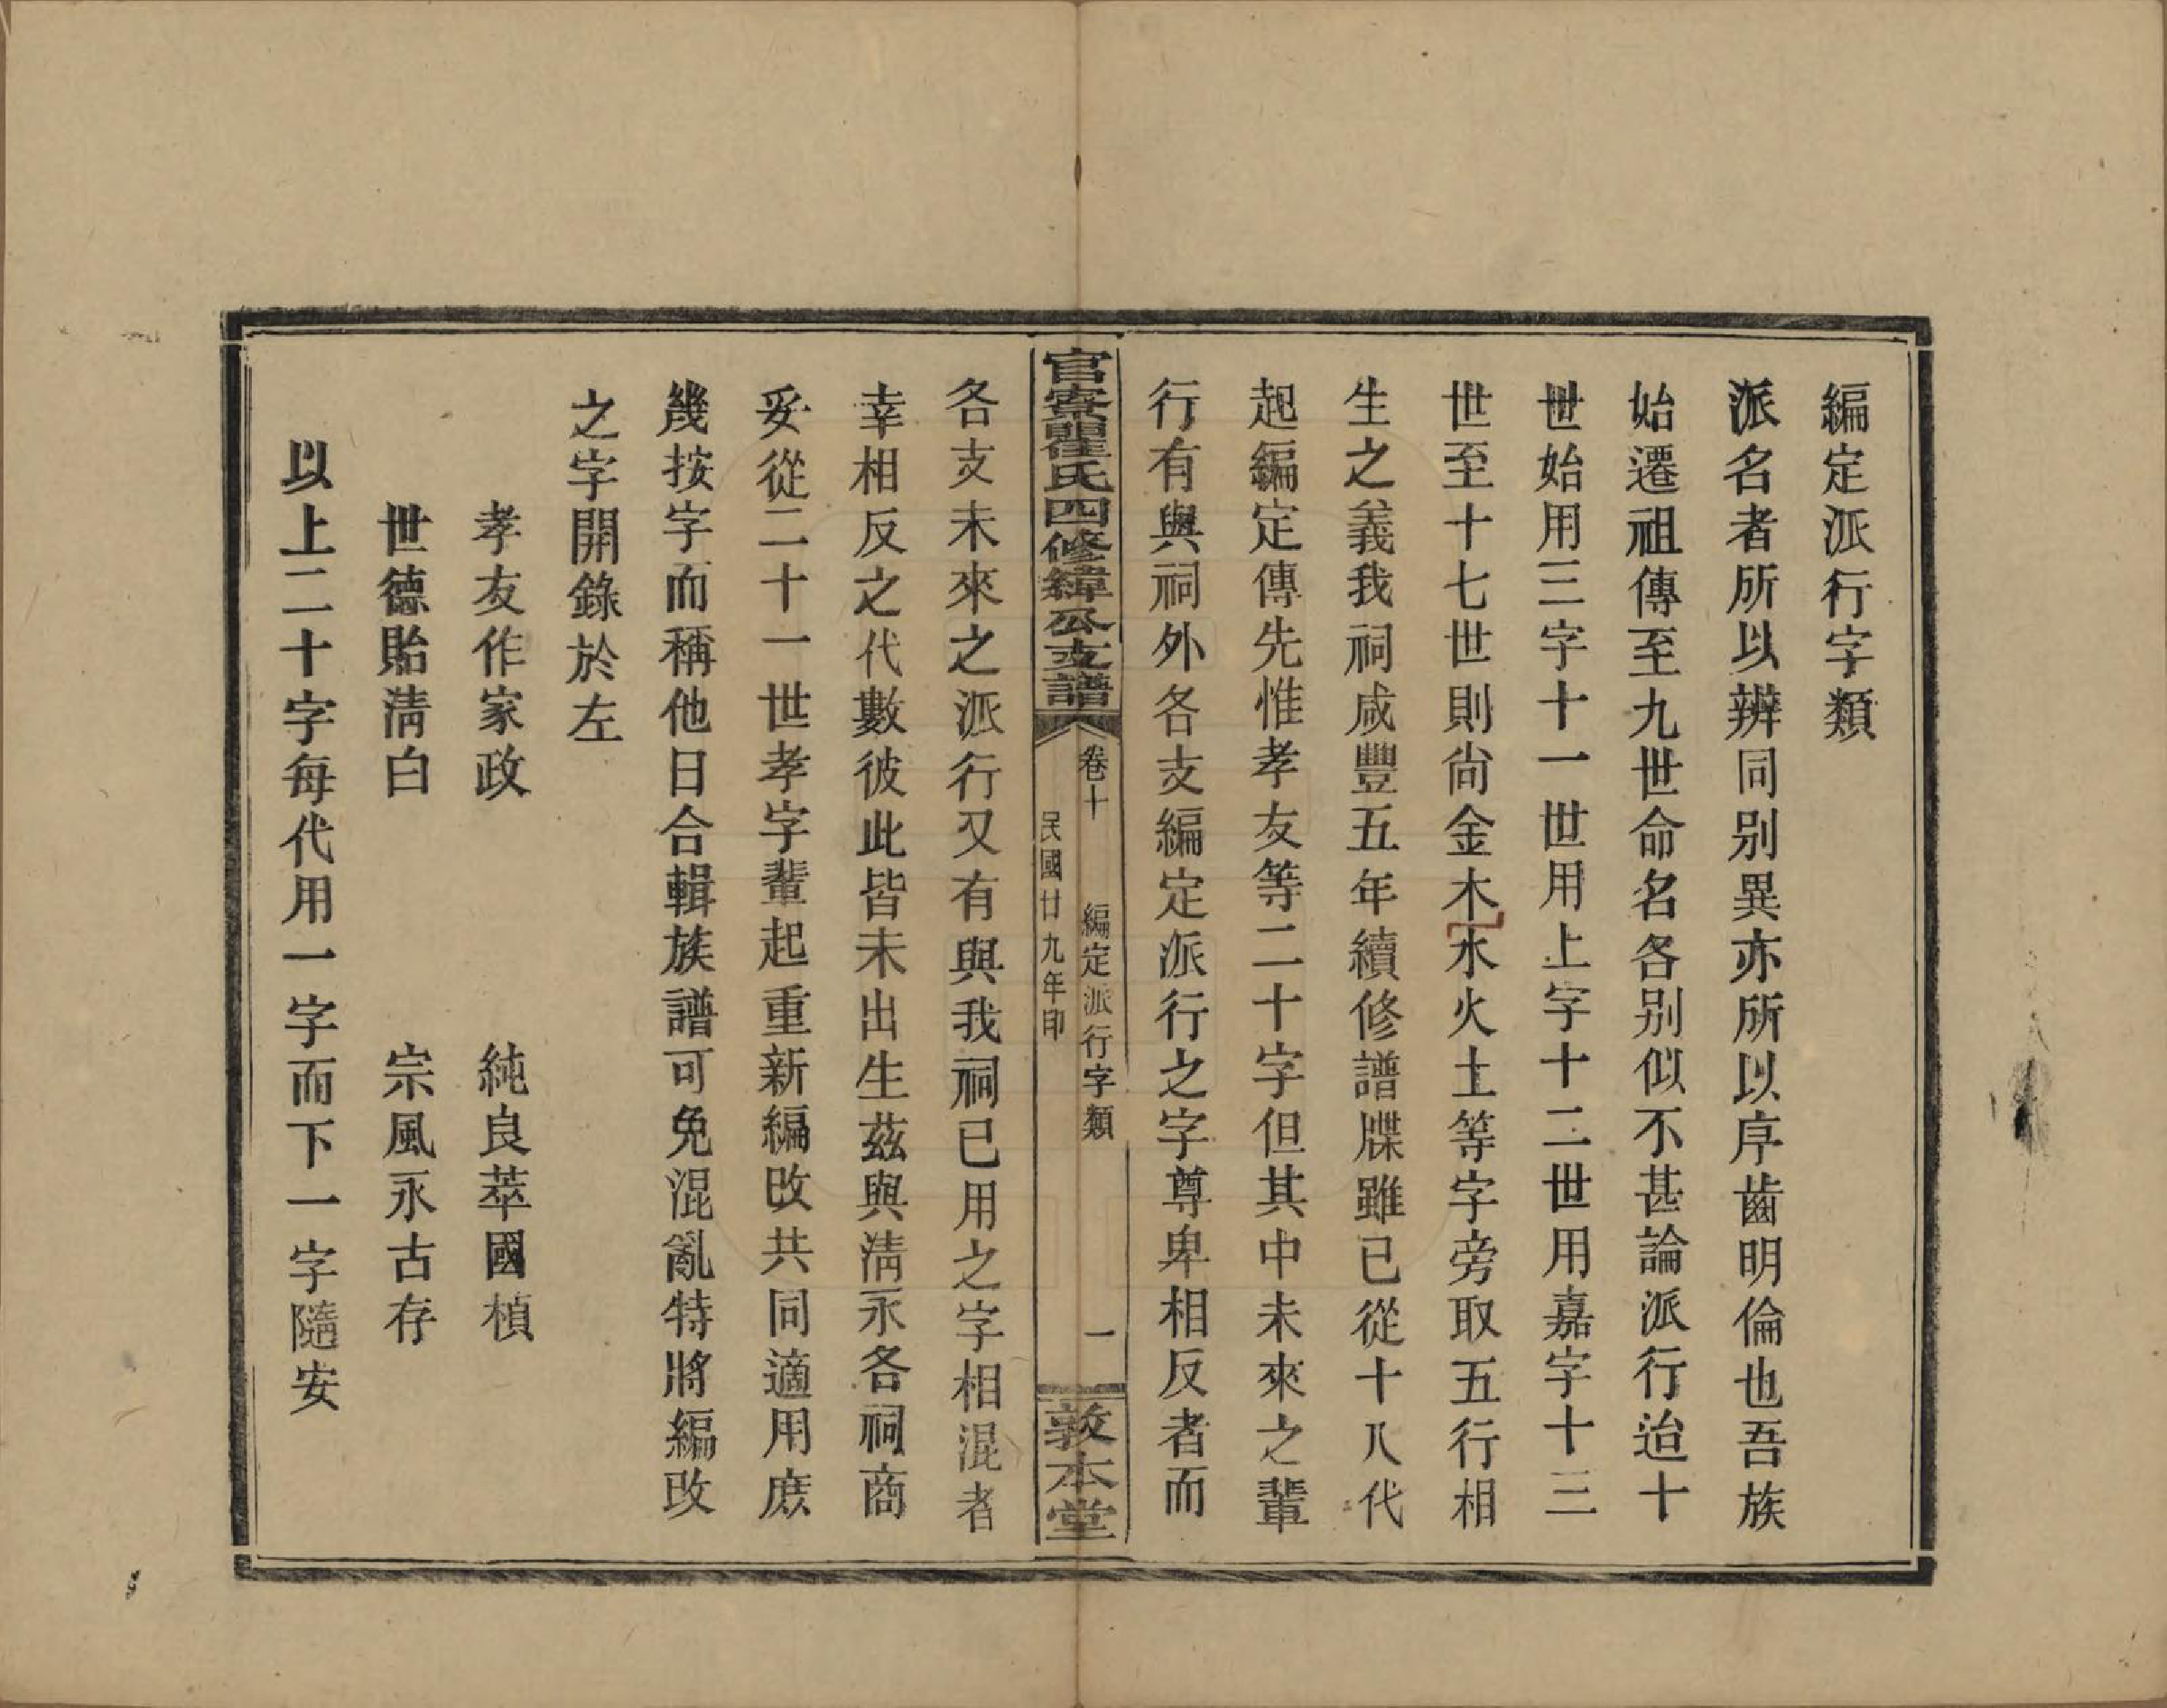 編定派行字類
派名者所以辨同别異亦所以序齒明倫也吾族
始遷祖傳至九世命名各别似不甚論派行迨十
世始用三字十一世用上字十二世用嘉字十三
世至十七世則尙金木水火土等字旁取五行相
生之義我祠咸豐五年續修譜牒雖已從十八代
起編定傳先惟孝友等二十字但其中未來之輩
行有與祠外各支編定派行之字尊卑相反者而
官寮瞿氏四修緯公支譜
卷十
編定派行字類
一
民國廿九年印
敦本堂
各支未來之派行又有與我祠已用之字相混者
幸相反之代數彼此皆未出生茲與淸永各祠商
妥從二十一世孝字輩起重新編改共同適用庶
幾按字而稱他日合輯族譜可免混亂特將編改
之字開錄於左
孝友作家政　純良萃國楨
世德貽淸白　宗風永古存
以上二十字每代用一字而下一字隨安